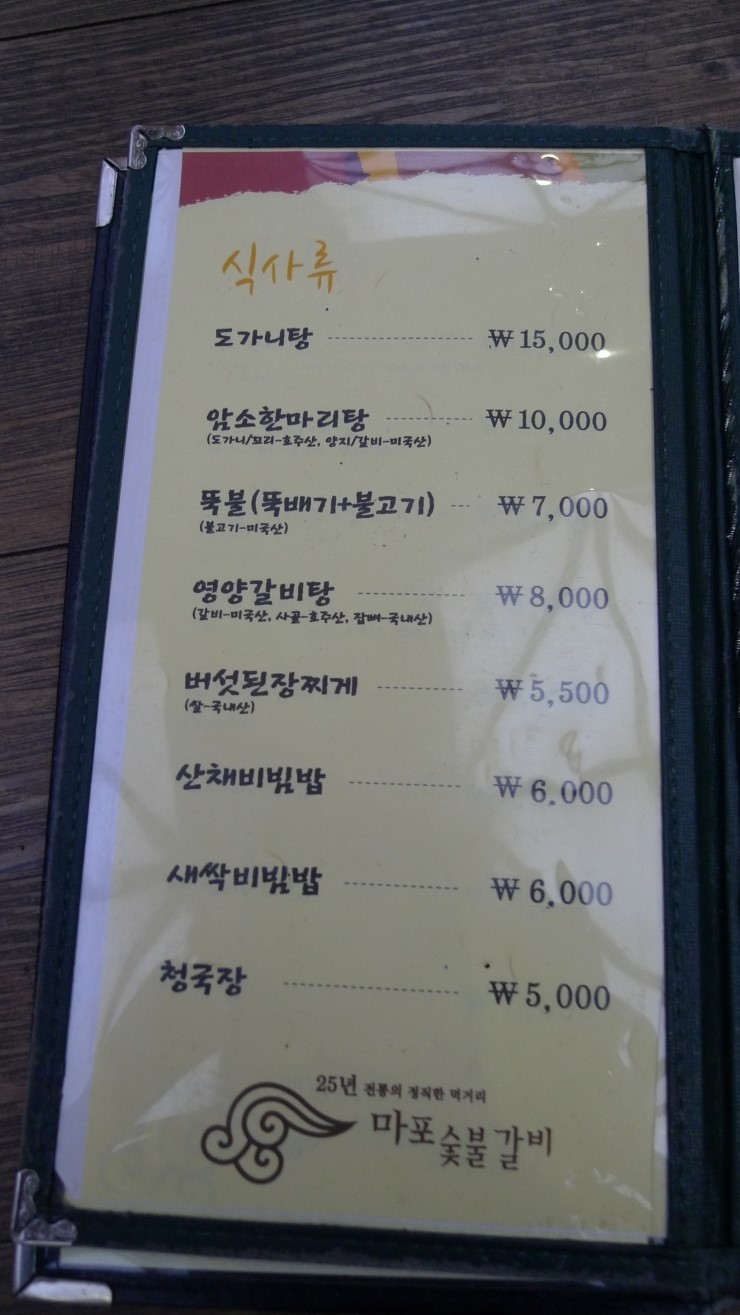 식사류
도가니탕 ₩15,000
암소한마리탕 ₩10,000
(도가니/꼬리-호주산, 양지/갈비-미국산)
뚝불(뚝배기+불고기) ₩7,000
(불고기-미국산)
영양갈비탕 ₩8,000
(갈비-미국산, 사골-호주산, 잡뼈-국내산)
버섯된장찌게 ₩5,500
(쌀-국내산)
산채비빔밥 ₩6.000
새싹비빔밥 ₩6,000
청국장 ₩5,000
25년 전통의 정직한 먹거리
마포숯불갈비